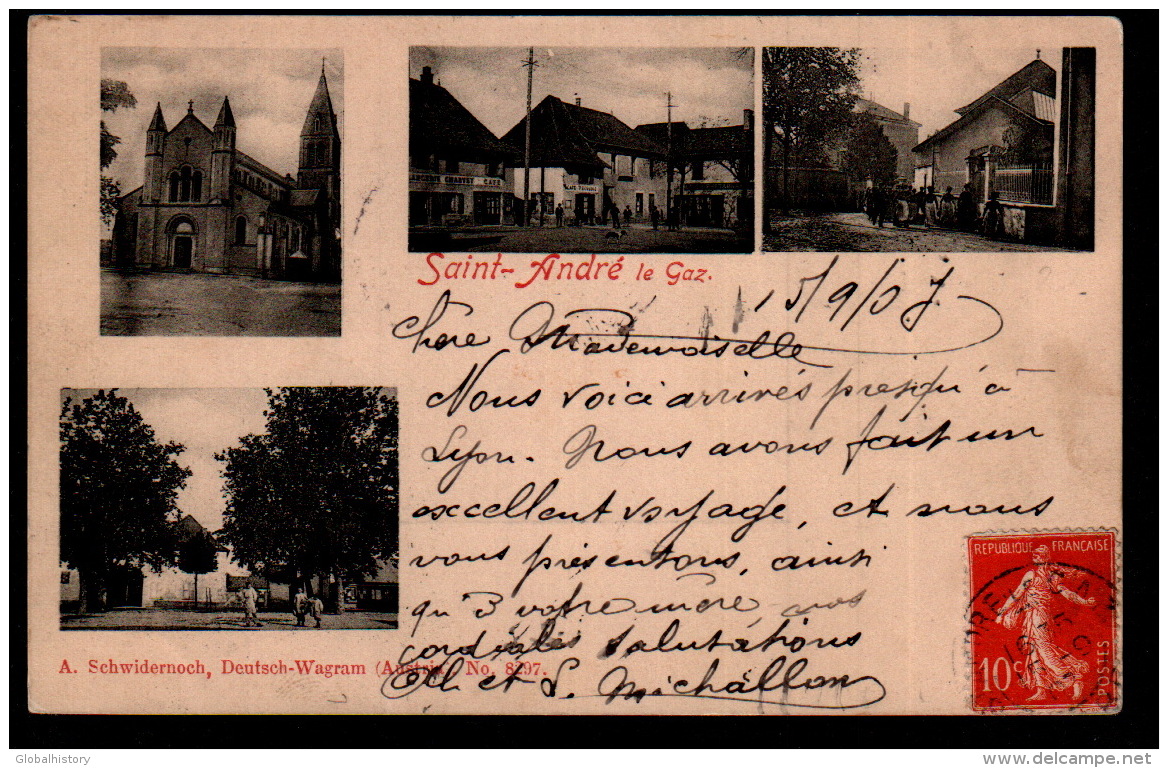 CAFÉ
Saint-André le Gaz.
15/9/07
Chère Mademoiselle
Nous voici arrivés presqu'à
Lyon. Nous avons fait un
excellent voyage, et nous
vous présentons, ainsi
qu'à votre mère nos
cordiales salutations
et L. Michallon
A. Schwidernoch, Deutsch-Wagram (Austria) No. 8297.
REPUBLIQUE FRANÇAISE
10c
POSTES
Globalhistory
www.delcampe.net